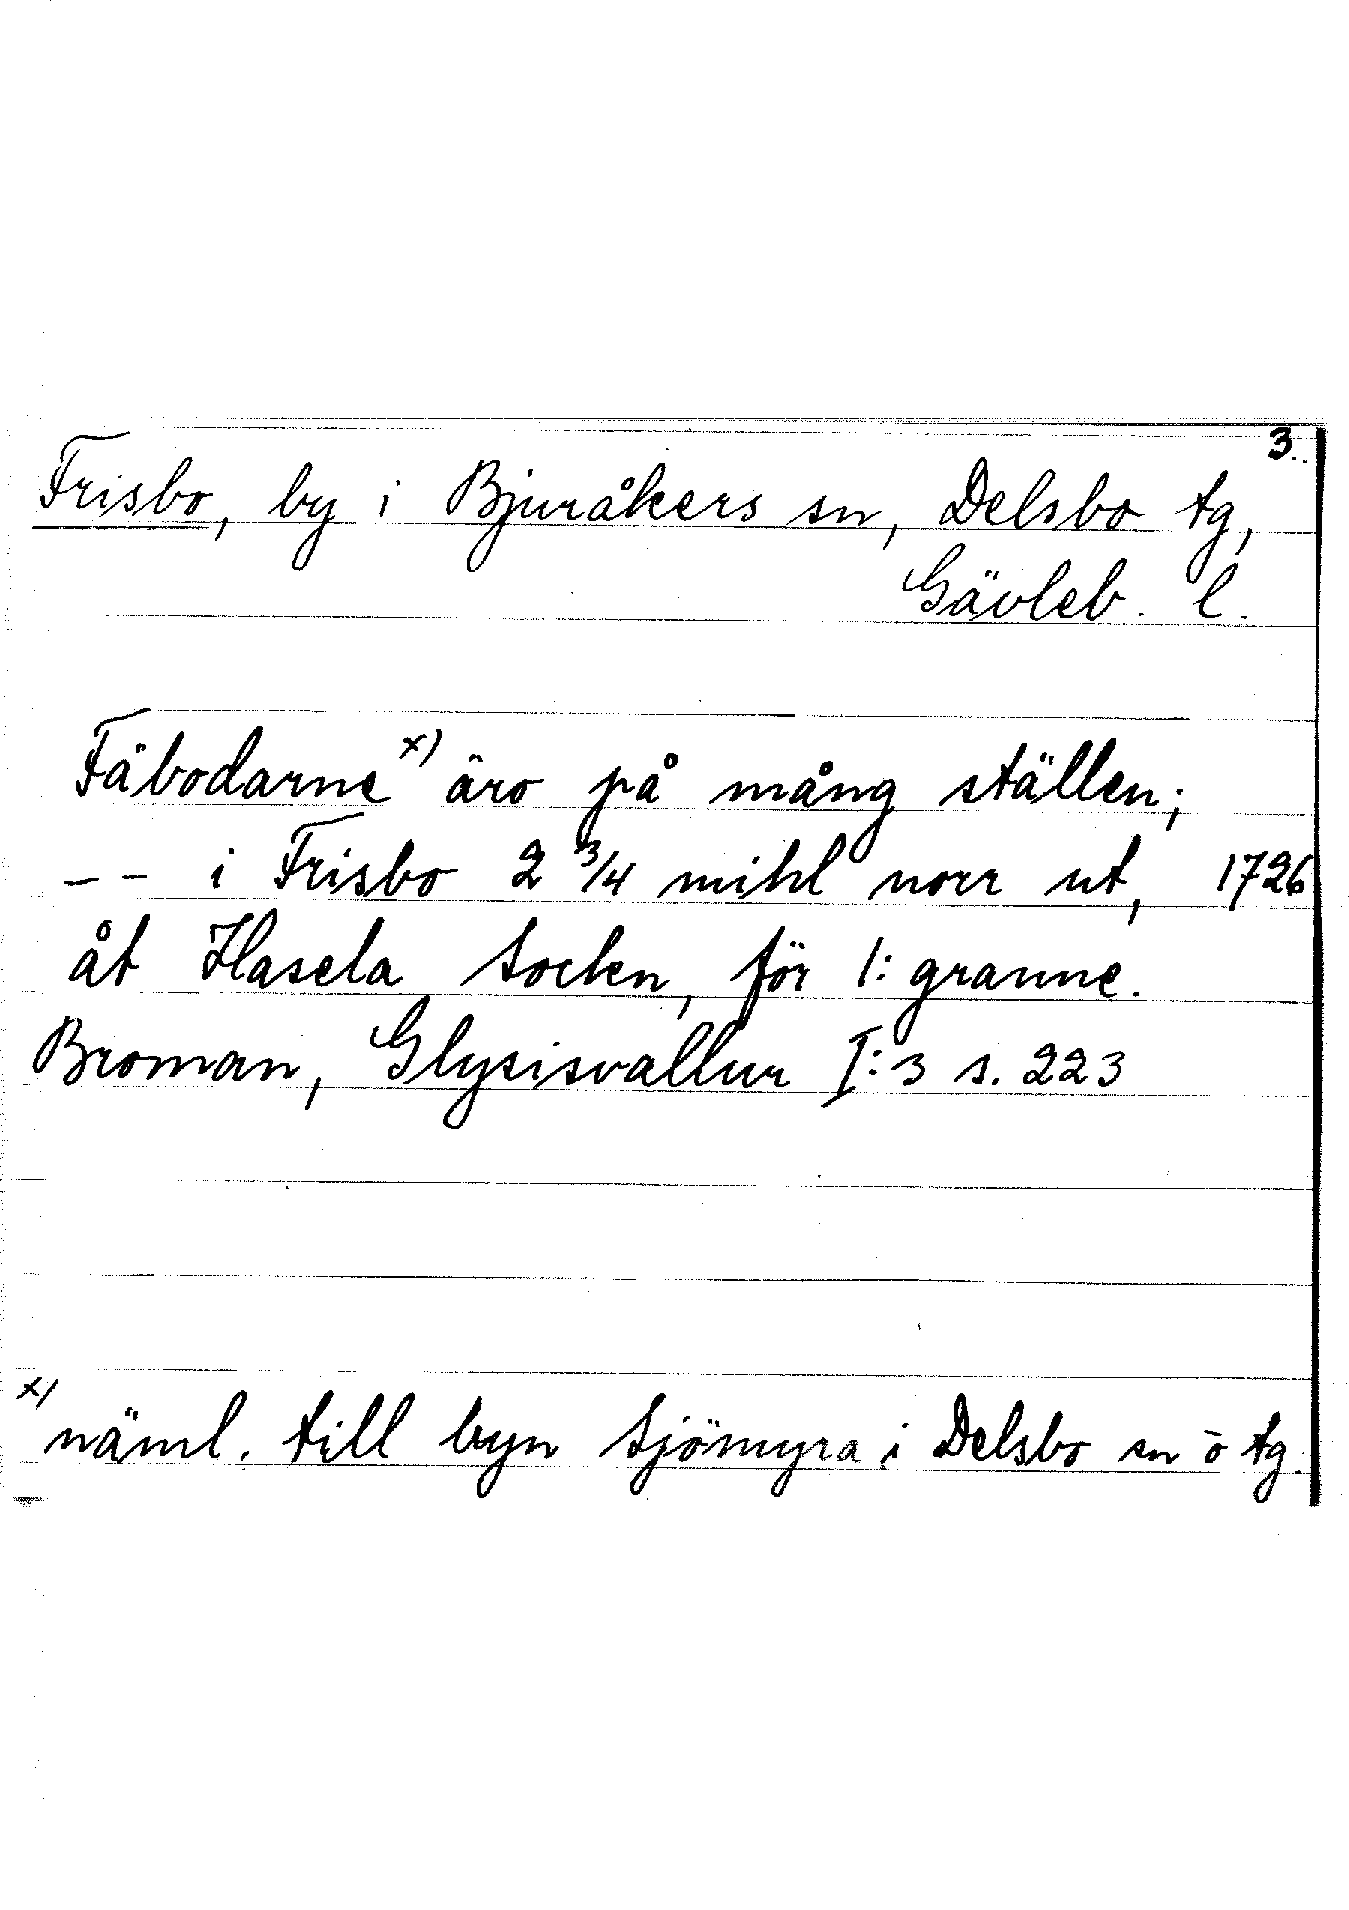 3.
Frisbo, by i Bjuråkers sn, Delsbo tg,
Gävleb. l.
Fäbodarne x) äro på mång ställen;
-- i Frisbo 2 3/4 mihl norr ut, 1726
åt Hasela Socken, för 1: granne.
Broman, Glysisvallur I:3 s. 223
x) näml. till byn Sjömyra i Delsbo sn o tg.